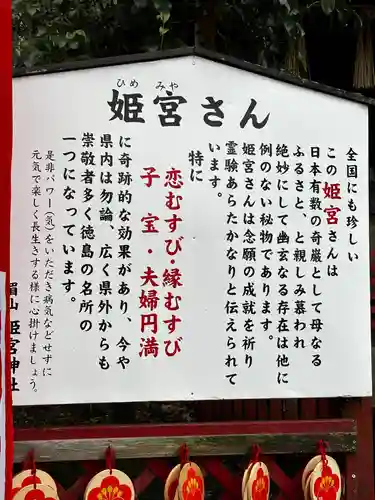 ひめ みや
姫宮さん
全国にも珍しい
この姫宮さんは
日本有数の奇巌として母なる
ふるさと、と親しみ慕われ
絶妙にして幽玄なる存在は他に
例のない秘物であります。
姫宮さんは念願の成就を祈り
霊験あらたかなりと伝えられて
います。
特に
恋むすび・縁むすび
子宝・夫婦円満
に奇跡的な効果があり、今や
県内は勿論、広く県外からも
崇敬者多く徳島の名所の
一つになっています。
是非パワー(気)をいただき病気などせずに
元気で楽しく長生きする様に心掛けましょう。
眉山 姫宮神社